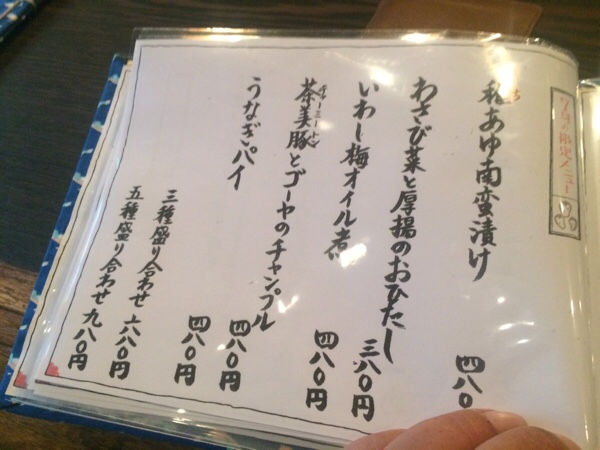 限定メニュー
稚あゆ南蛮漬け 四八〇
わさび菜と厚揚のおひたし 三八〇円
いわし梅オイル煮 四八〇円
茶美豚とゴーヤのチャンプル 四八〇円
チャーミートン
うなぎパイ 四八〇円
三種盛り合わせ 六八〇円
五種盛り合わせ 九八〇円